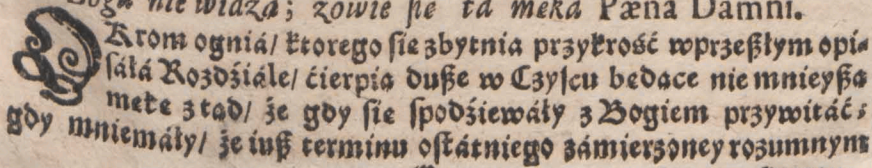 Boga nie widzą; zowie się ta męka Pæna Damni.
OKrom ogniá/ ktorego się zbytnia przykrość wprzeßłym opi-
sáłá Rozdźiále/ ćierpią duße w Czyscu będące nie mnieyßą
mękę ztąd/ że gdy się spodźiewáły z Bogiem przywitáć;
gdy mniemáły/ że iuß terminu ostátniego zámierzoney rozumnym